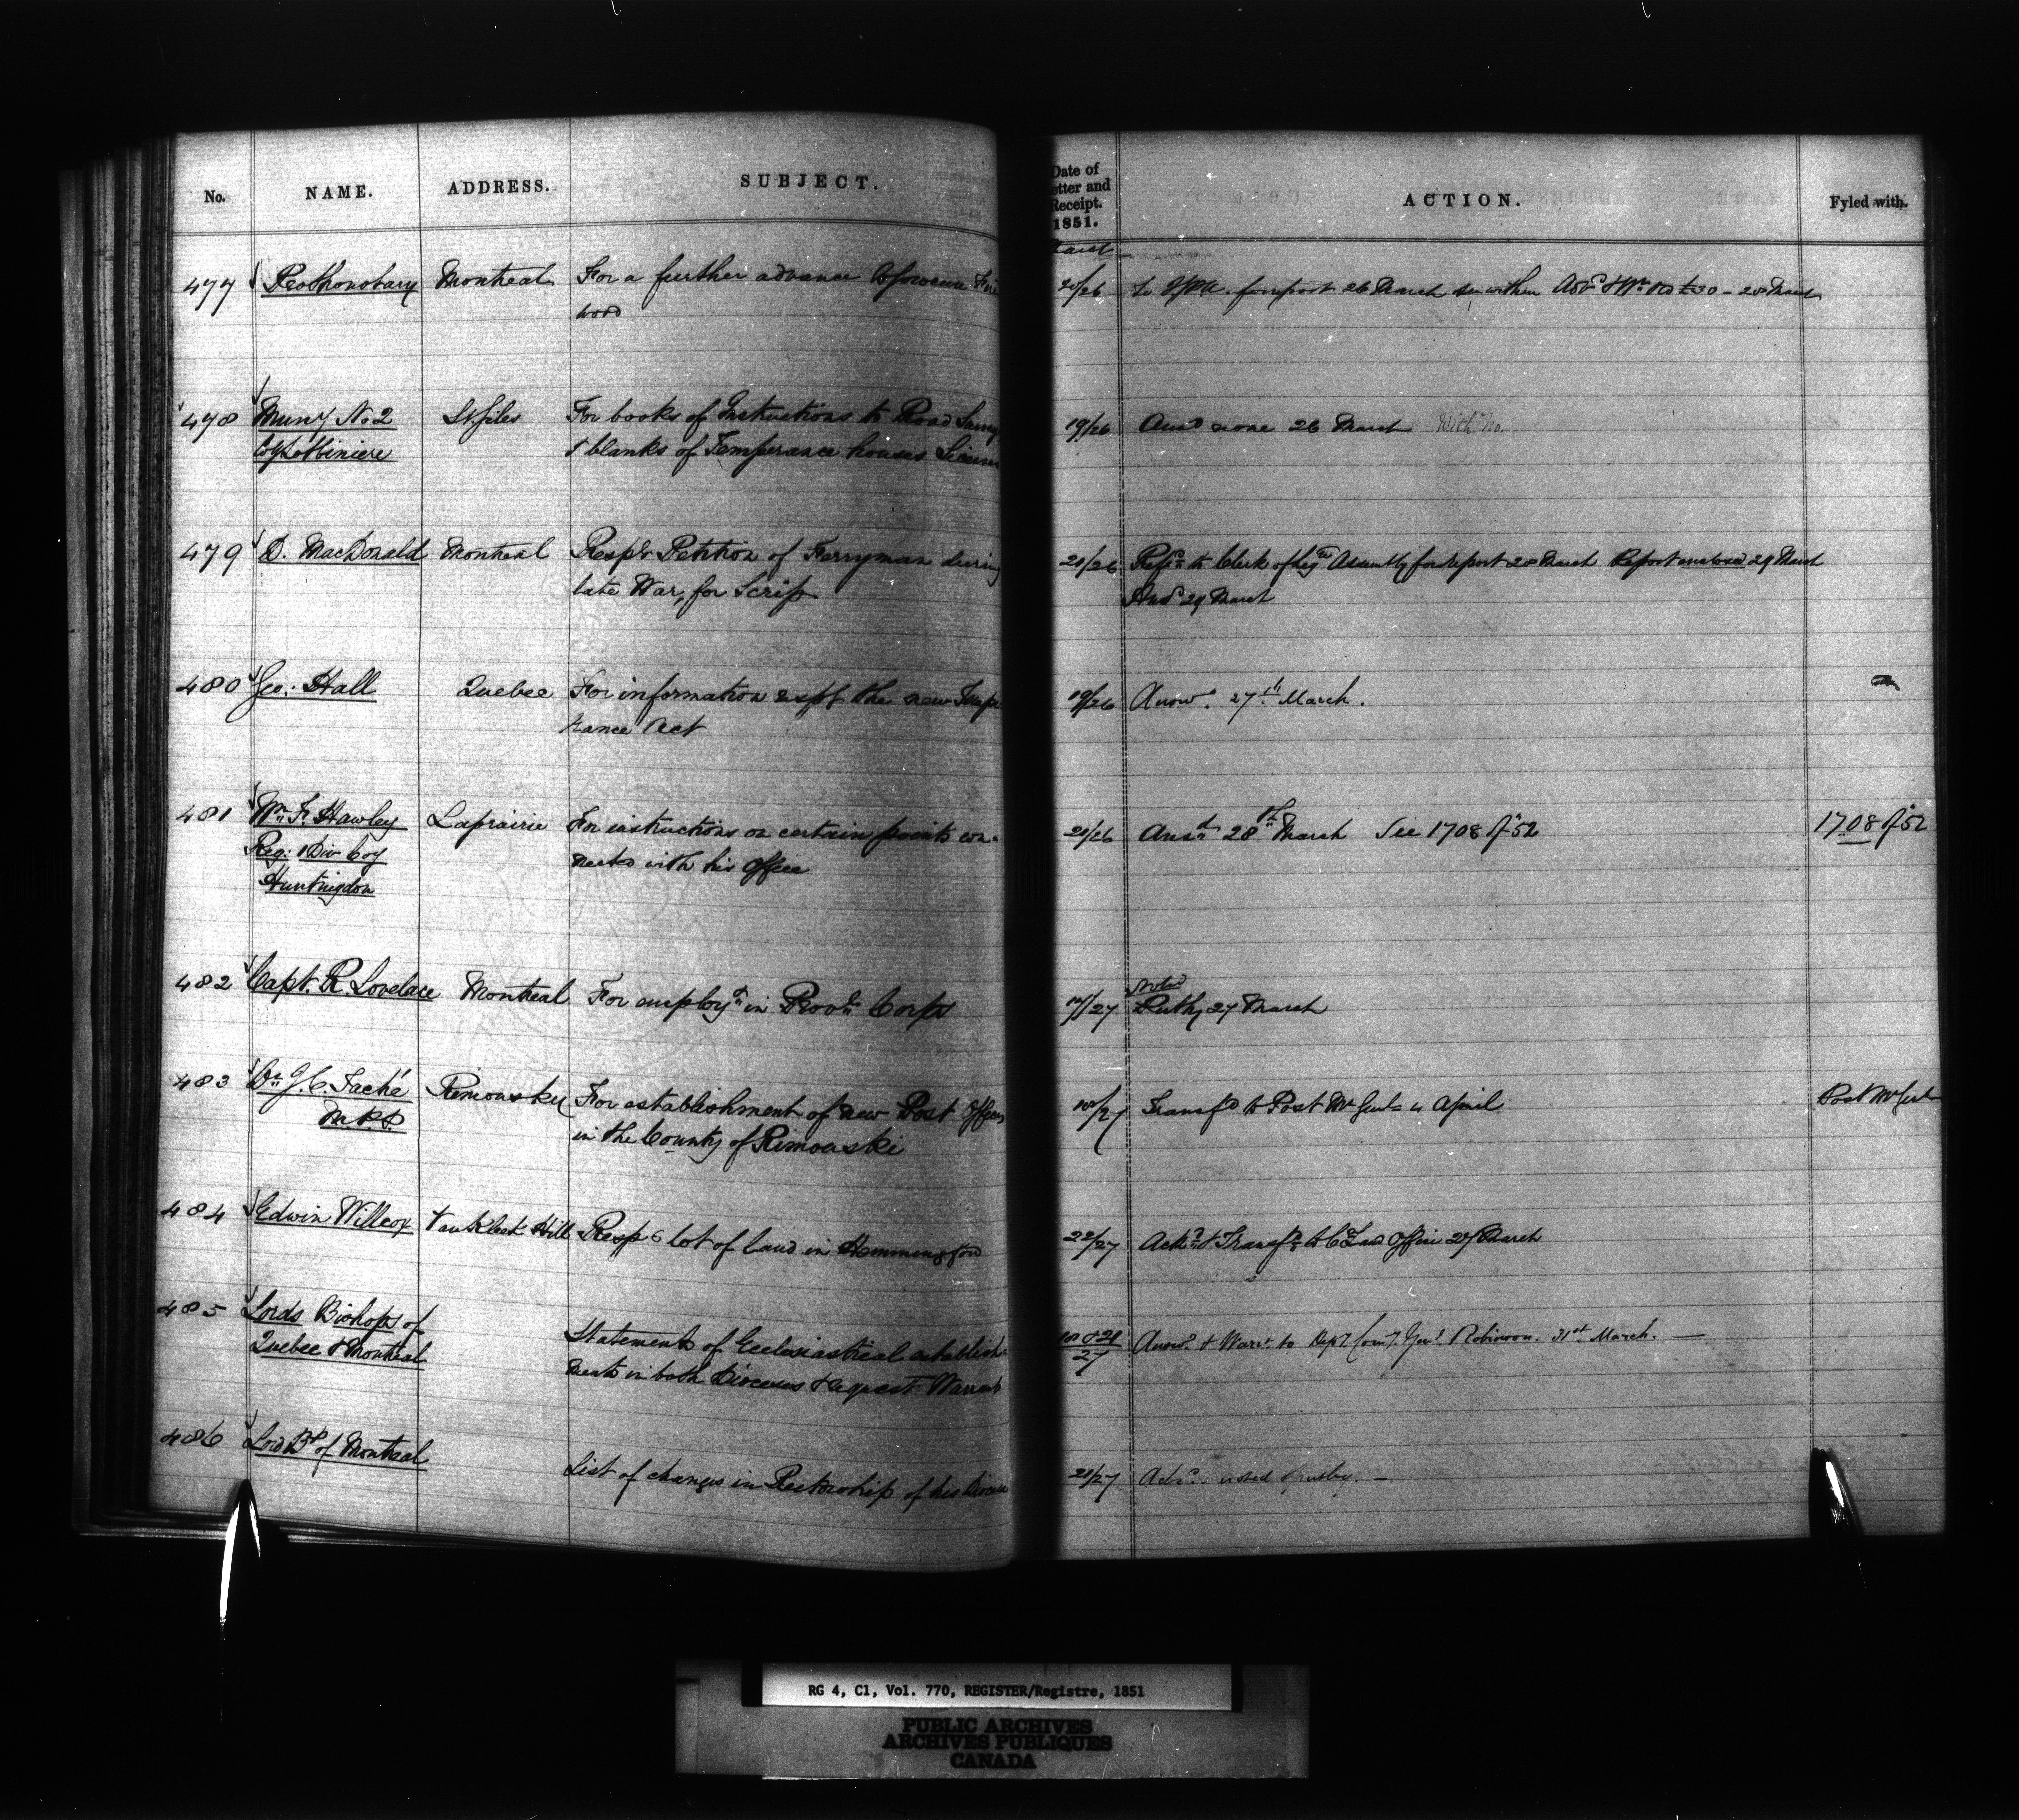 No. NAME. ADDRESS. SUBJECT.
Date of
etter and
Receipt.
1851.
ACTION. Fyled with.
March
477 Prothonotary Montreal For a further advance to procure Fire
wood
20/26 for report 26 March 28 March
478 Muny No 2 St. Giles For books of Instructions to Road Surv
Coy Lotbiniere & blanks of Temperance houses Licens
19/26 Ansd none 26 March With No.
479 D. MacDonald Montreal Respg Petition of Ferryman during
late War, for Scrip
20/26 Refd to Clerk of Leg Assembly for report 28 March Report enclosed 29 March
Ansd 29 March
480 Geo: Hall Quebec For information respg the new Tempe
rance Act
19/26 Answd. 27th March.
481 Wm F. Hawley Laprairie For instructions on certain points con-
Reg: 1 Div Coy nected with his office
Huntingdon
20/26 Ansd 28th March See 1708 of 52 1708 of 52
482 Capt. R. Lovelace Montreal For employt in Provl Corps
17/27 Noted
27 March
483 Dr J. C. Taché Rimouskie For establishment of new Post Offices
M.P.P. in the County of Rimouski
/27 Transfd to Post Mr Genl 4 April Post Mr Genl
484 Edwin Willcox Vankleek Hill Respg lot of land in Hemmingford
22/27 Ackd & Transfd to C Land Office 27 March
485 Lords Bishops of
Quebec & Montreal Statements of Ecclesiastical establish-
ments in both Dioceses & request Warrant
18 & 21
27 Answd. & Warrt. to Depy. Comy. Genl. Robinson. 31st March.
486 Lord Bp of Montreal List of changes in Rectorship of his Diocese
21/27 Ackd. noted
RG 4, C1, Vol. 770, REGISTER/Registre, 1851
PUBLIC ARCHIVES
ARCHIVES PUBLIQUES
CANADA